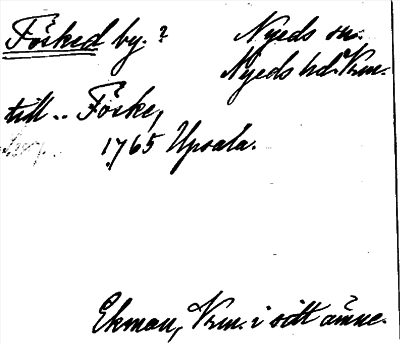 Fösked by. ? Nyeds sn.
Nyeds hd. Vrm.
till .. Föske,
1765 Upsala.
Ekman, Vrm. i sitt ämne.